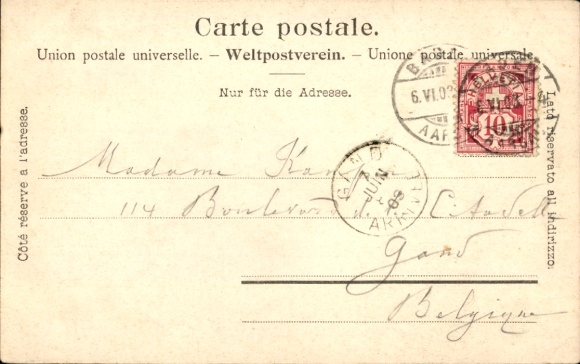 Carte postale.
Union postale universelle. – Weltpostverein. – Unione postale universale.
Nur für die Adresse.
Côté réservé à l'adresse.
Lato riservato all indirizzo.
6.VI.03
AAR
HELVETIA
10
GAND
7
JUIN
ARRIVÉE
Madame
114 Boulevard de Citadelle
Gand
Belgique